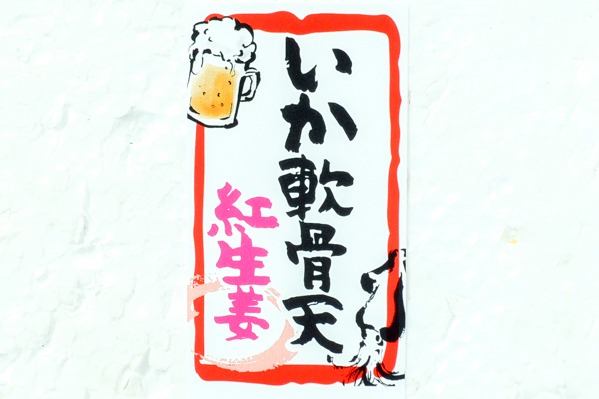 いか軟骨天
紅生姜